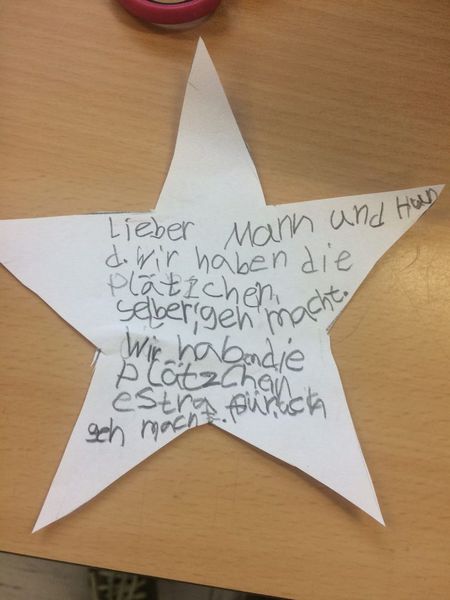 Lieber Mann und Hun
d. Wir haben die
plätzchen
selber geh macht.
Wir haben die
plätzchen
estra für
geh macht.